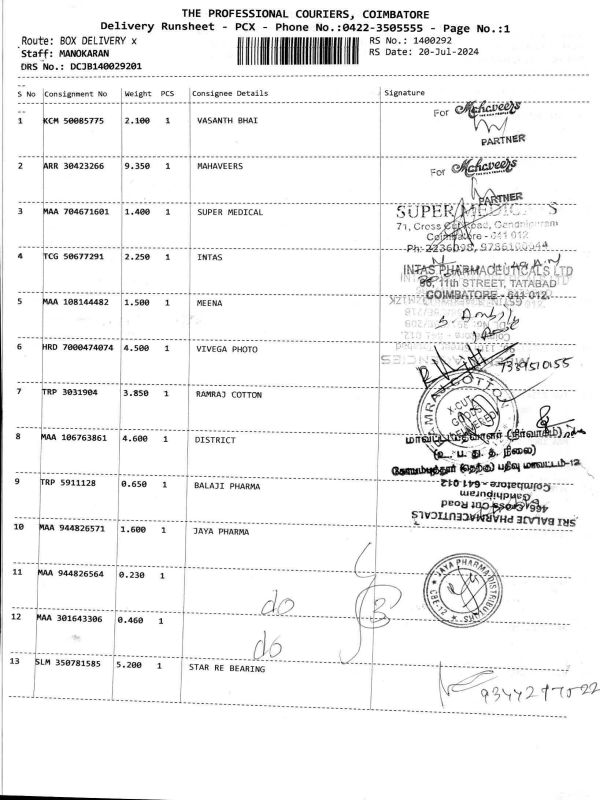 THE PROFESSIONAL COURIERS, COIMBATORE
Delivery Runsheet - PCX - Phone No.:0422-3505555 - Page No.:1
Route: BOX DELIVERY x
RS No.: 1400292
Staff: MANOKARAN
RS Date: 20-Jul-2024
DRS No.: DCJB140029201
S No Consignment No Weight PCS Consignee Details Signature
1 KCM 50085775 2.100 1 VASANTH BHAI
For Mahaveers
PARTNER
2 ARR 30423266 9.350 1 MAHAVEERS
For Mahaveers
PARTNER
3 MAA 704671601 1.400 1 SUPER MEDICAL
SUPER MEDICALS
71, Cross Cut Road, Gandhipuram
Coimbatore - 641 012
4 TCG 50677291 2.250 1 INTAS
INTAS PHARMACEUTICALS LTD
86, 11th STREET, TATABAD
COIMBATORE - 641 012.
5 MAA 108144482 1.500 1 MEENA
6 HRD 7000474074 4.500 1 VIVEGA PHOTO
7 TRP 3031904 3.850 1 RAMRAJ COTTON
RAMRAJ COTTON
X-CUT
8 MAA 106763861 4.600 1 DISTRICT
(உ. ப. து. த. நிலை)
9 TRP 5911128 0.650 1 BALAJI PHARMA
SRI BALAJE PHARMACEUTICALS
466, Cross Cut Road
Gandhipuram
Coimbatore - 641 012
10 MAA 944826571 1.600 1 JAYA PHARMA
11 MAA 944826564 0.230 1
do
JAYA PHARMA DISTRIBUTORS
CBE-12
12 MAA 301643306 0.460 1
do
13 SLM 350781585 5.200 1 STAR RE BEARING